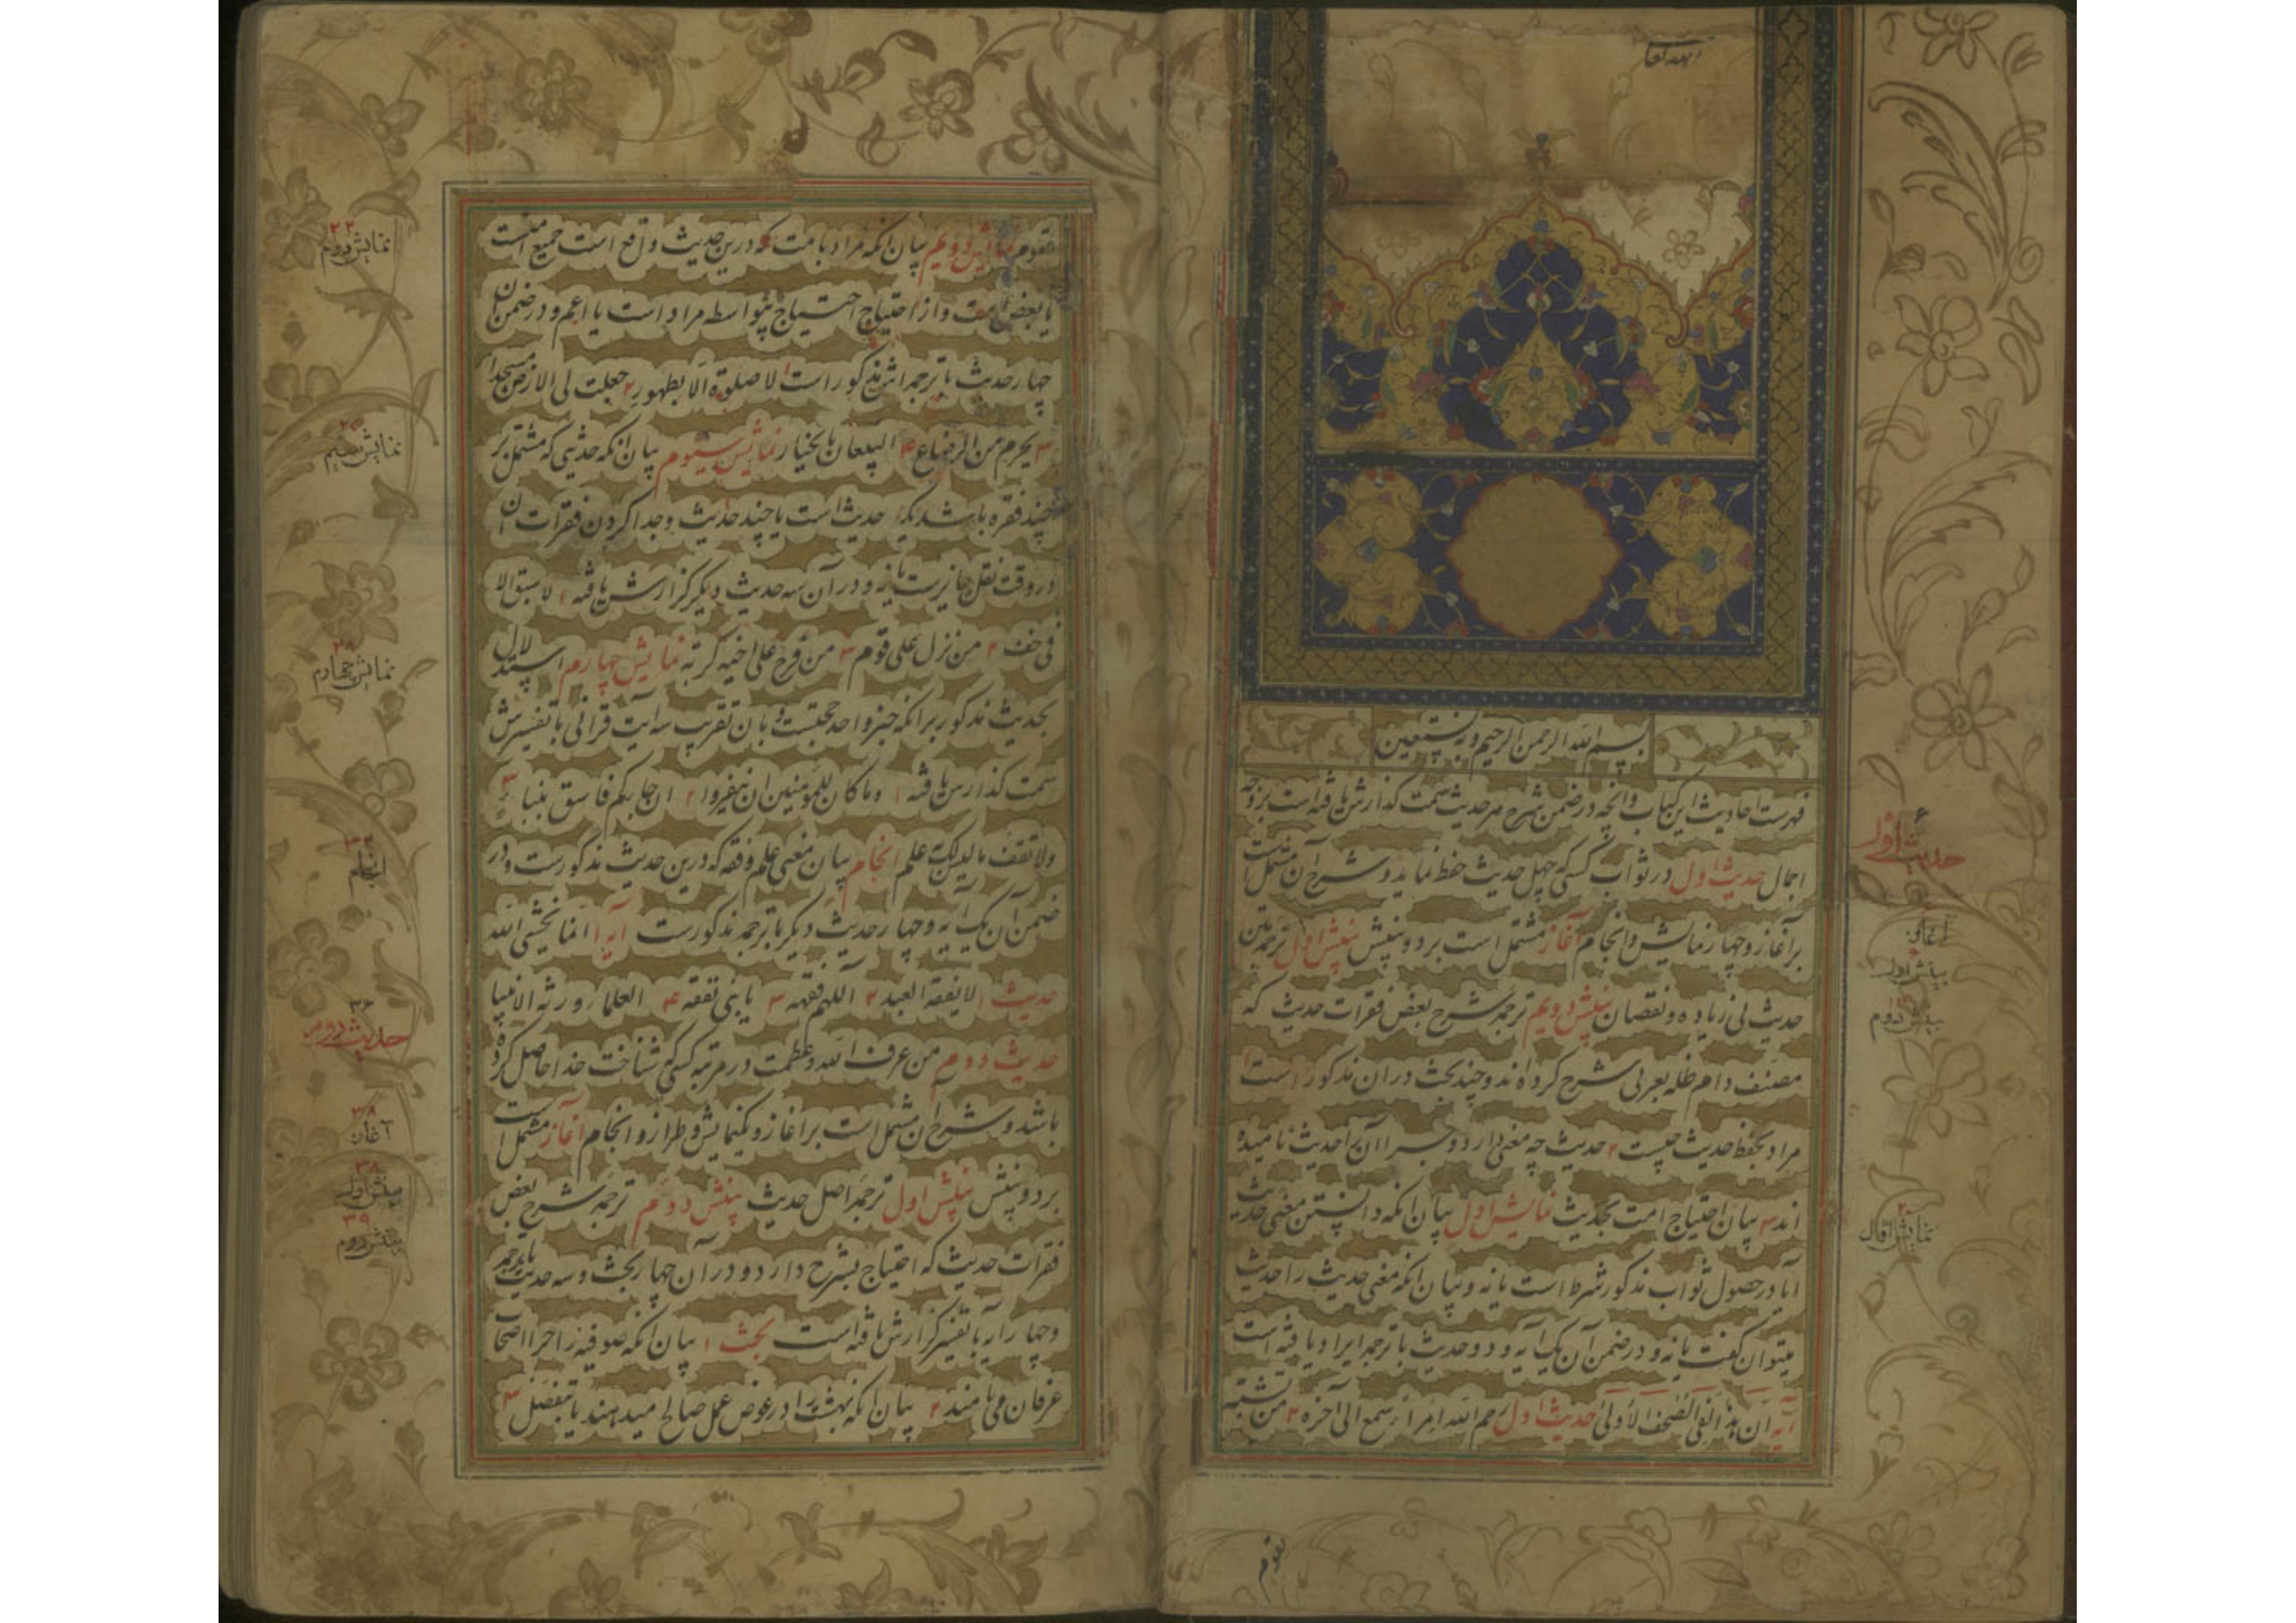 بسم الله الرحمن الرحیم وبه نستعین
فهرست احادیث این کتاب وانچه در ضمن شرح هر حدیث سمت گذارش یافته است بر وجه
اجمال حدیث اول در ثواب کسی که چهل حدیث حفظ نماید و شرح آن مشتمل است
بر آغاز و چهار نمایش و انجام آغاز مشتمل است بر دو بینش بینش اول ترجمه متن
حدیث بی زیاده و نقصان بینش دویم ترجمه شرح بعض فقرات حدیث که
مصنف دام ظله بعربی شرح کرده اند و چند بحث دران مذکور است ۱
مراد بحفظ حدیث چیست ۲ حدیث چه معنی دارد و چرا آن را حدیث نامیده
اند ۳ بیان احتیاج امت بحدیث نمایش اول بیان انکه دانستن معنی حدیث
آیا در حصول ثواب مذکور شرط است یا نه و بیان انکه معنی حدیث را حدیث
میتوان گفت یا نه و در ضمن آن یک آیه و دو حدیث با ترجمه ایراد یافته است
آیه ان هذا لفی الصحف الأولی حدیث اول رحم الله امرأ سمع الی آخره ۲ من تشبه
بقوم
حدیث اول
آغاز
بینش اول
بینش دوم
نمایش اول
بقوم نمایش دویم بیان انکه مراد بامت که درین حدیث واقع است جمیع امتست
یا بعض امت و از احتیاج احتیاج بیواسطه مراد است یا اعم و در ضمن آن
چهار حدیث با ترجمه اش مذکور است ۱ لا صلوة الا بطهور ۲ جعلت لی الارض مسجدا
۳ یحرم من الرضاع ۴ البیعان بالخیار نمایش سیوم بیان انکه حدیثی که مشتمل بر
چند فقره باشد یک حدیث است یا چند حدیث و جدا کردن فقرات آن
در وقت نقل جایز است یا نه و در آن سه حدیث دیگر گزارش یافته ۱ لا سبق الا
فی خف ۲ من نزل علی قوم ۳ من فرج علی اخیه کربة نمایش چهارم استدلال
بحدیث مذکور بر انکه خبر واحد حجتست و بان تقریب سه آیت قرآنی با تفسیرش
سمت گذارش یافته ۱ وما کان للمؤمنین ان ینفروا ۲ ان جاءکم فاسق بنبأ ۳
ولا تقف ما لیس لک به علم انجام بیان معنی علم و فقه که درین حدیث مذکورست و در
ضمن آن یک آیه و چهار حدیث دیگر با ترجمه مذکورست آیه ۱ انما یخشی الله
حدیث ۱ لا یفقه العبد ۲ اللهم فقهه ۳ یا بنی تفقه ۴ العلماء ورثة الانبیا
حدیث دوم من عرف الله وعظمت در مرتبه کسی که شناخت خدا حاصل کرده
باشد و شرح آن مشتمل است بر آغاز و یکنمایش و طراز و انجام آغاز مشتمل است
بر دو بینش بینش اول ترجمه اصل حدیث بینش دوم ترجمه شرح بعض
فقرات حدیث که احتیاج بشرح دارد و در آن چهار بحث و سه حدیث با ترجمه
و چهار آیه با تفسیر گزارش یافته است بحث ۱ بیان انکه صوفیه را چرا اصحاب
عرفان می نامند ۲ بیان انکه بهشت را در عوض عمل صالح میدهند یا بتفضل ۳
۲۲
نمایش دوم
۲۵
نمایش سیم
۲۸
نمایش چهارم
۳۲
انجام
۳۶
حدیث دوم
۳۸
آغاز
۳۸
بینش اول
۳۹
بینش دوم